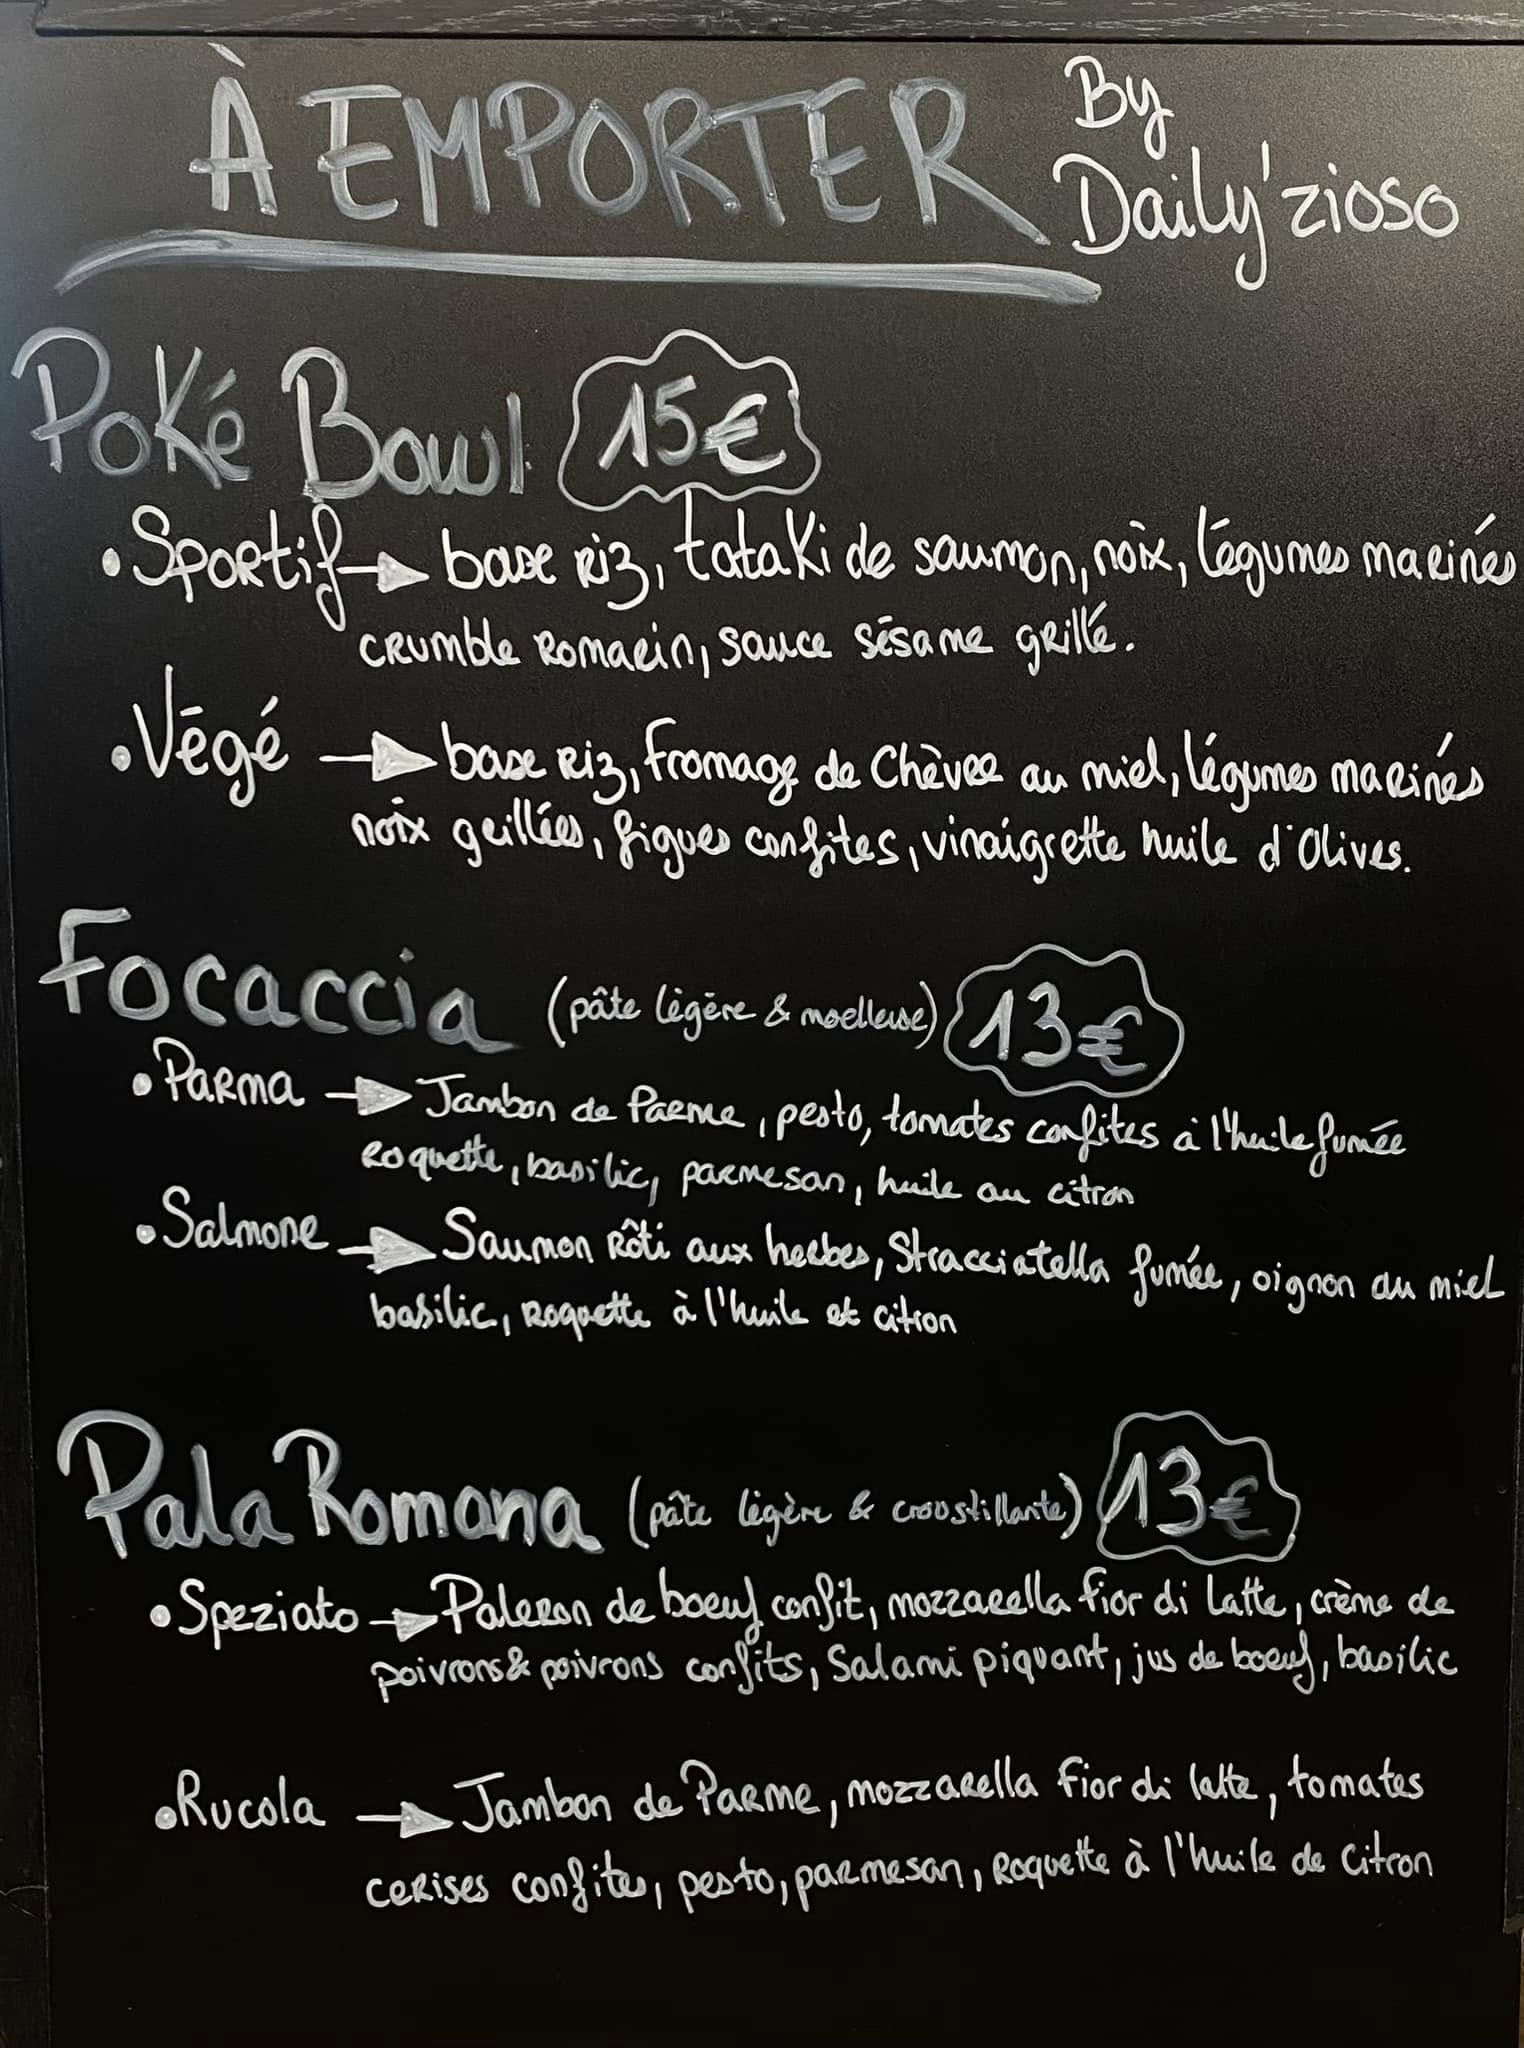 À EMPORTER
By
Daily'zioso
Poké Bowl: 15€
• Sportif → base riz, tataki de saumon, noix, légumes marinés
crumble romarin, sauce sésame grillé.
• Végé → base riz, fromage de Chèvre au miel, légumes marinés
noix grillées, figues confites, vinaigrette huile d'Olives.
Focaccia (pâte légère & moelleuse) 13€
• Parma → Jambon de Parme, pesto, tomates confites à l'huile fumée
roquette, basilic, parmesan, huile au citron
• Salmone → Saumon rôti aux herbes, Stracciatella fumée, oignon au miel
basilic, roquette à l'huile et citron
Pala Romana (pâte légère & croustillante) 13€
• Speziato → Paleron de boeuf confit, mozzarella fior di latte, crème de
poivrons & poivrons confits, Salami piquant, jus de boeuf, basilic
• Rucola → Jambon de Parme, mozzarella fior di latte, tomates
cerises confites, pesto, parmesan, roquette à l'huile de citron